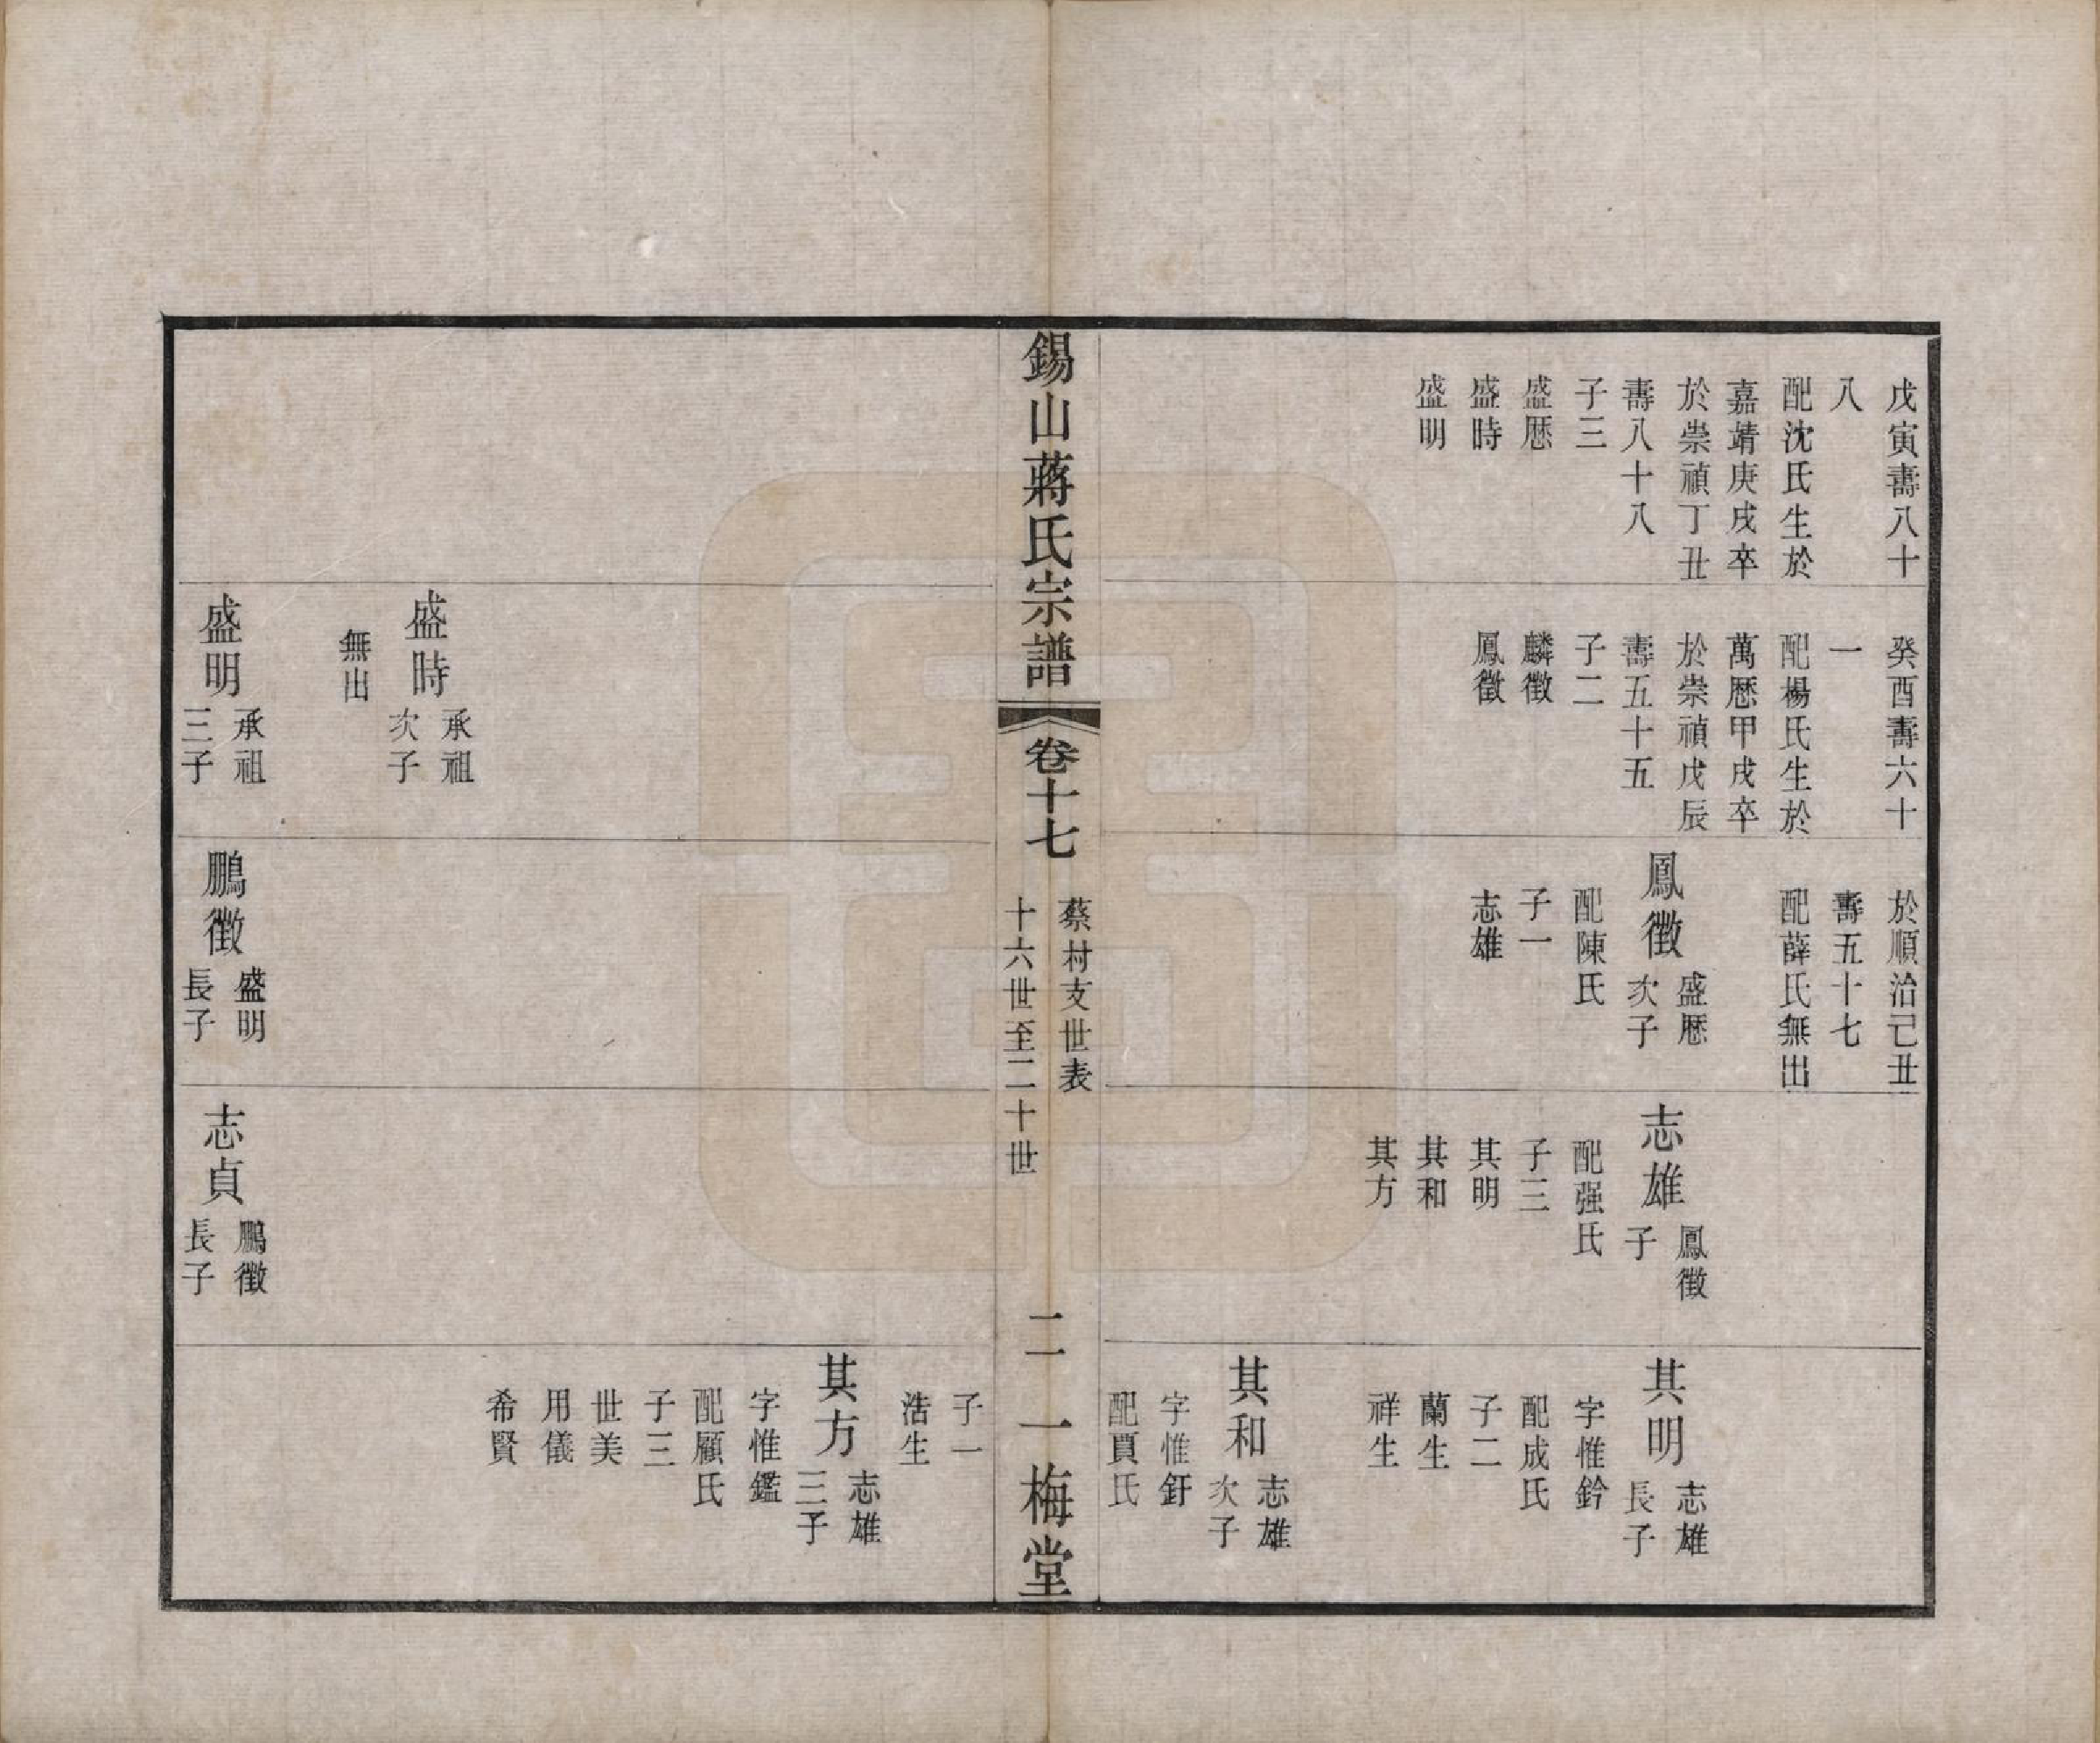 戊寅壽八十
八
配沈氏生於
嘉靖庚戌卒
於崇禎丁丑
壽八十八
子三
盛歷
盛時
盛明
癸酉壽六十
一
配楊氏生於
萬歷甲戌卒
於崇禎戊辰
壽五十五
子二
麟徵
鳳徵
於順治己丑
壽五十七
配薛氏無出
鳳徵
盛歷
次子
配陳氏
子一
志雄
志雄
鳳徵
子
配强氏
子三
其明
其和
其方
其明
志雄
長子
字惟鈐
配成氏
子二
蘭生
祥生
其和
志雄
次子
字惟釪
配賈氏
錫山蔣氏宗譜
卷十七
蔡村支世表
十六世至二十世
二
一梅堂
盛時
承祖
次子
無出
盛明
承祖
三子
鵬徵
盛明
長子
志貞
鵬徵
長子
子一
浩生
其方
志雄
三子
字惟鑑
配顧氏
子三
世美
用儀
希賢